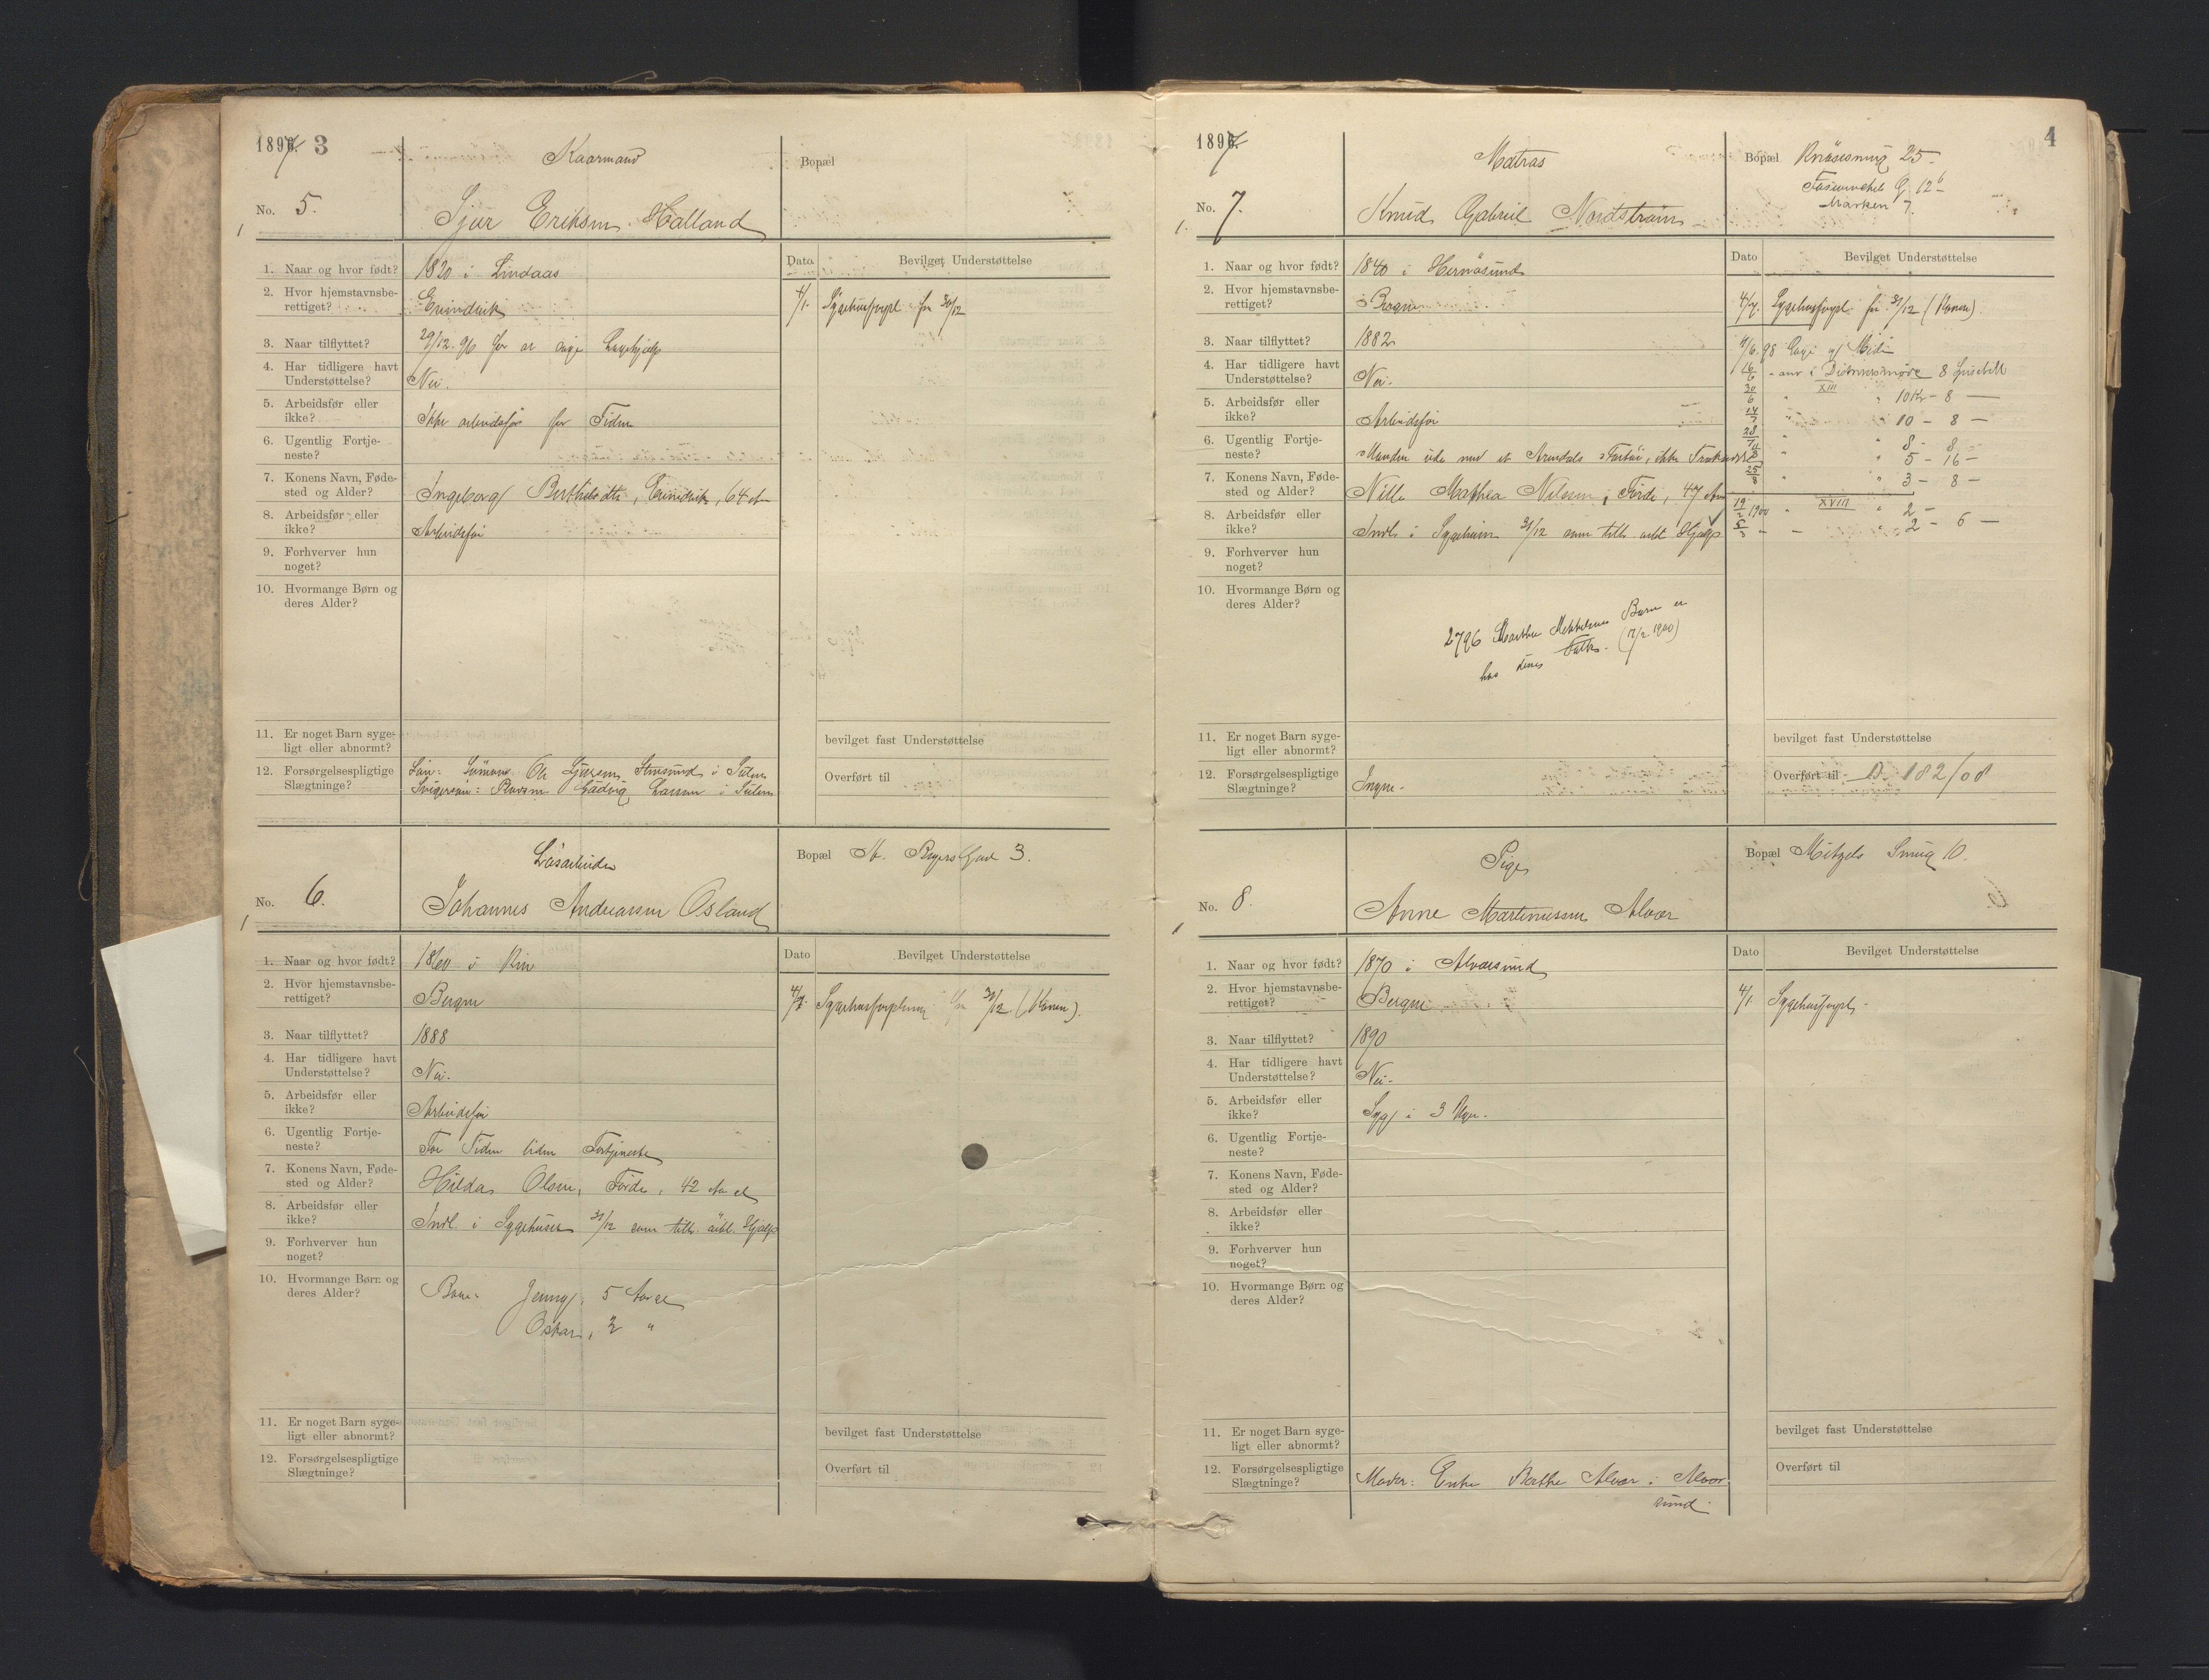 1897. 3
Kaarmand
Bopæl
No. 5.
Sjur Eriksen Halland
1. Naar og hvor født? 1820 i Lindaas
Dato Bevilget Understøttelse
2. Hvor hjemstavnsbe-
rettiget? Evindvik
4/1. Sygehusforpl. fra 30/12
3. Naar tilflyttet? 29/12. 96 for at søge Lægehjælp
4. Har tidligere havt
Understøttelse? Nei.
5. Arbeidsfør eller
ikke? Ikke arbeidsfør for Tiden
6. Ugentlig Fortje-
neste?
7. Konens Navn, Føde-
sted og Alder? Ingeborg Berthelsdtr, Evindvik, 64 Aar
8. Arbeidsfør eller
ikke? Arbeidsfør
9. Forhverver hun
noget?
10. Hvormange Børn og
deres Alder?
11. Er noget Barn syge-
ligt eller abnormt?
bevilget fast Understøttelse
12. Forsørgelsespligtige
Slægtninge? Søn: Sømand Ole Sjursen, i Sulen
Svigersøn: Larsen i Sulen
Overført til
Løsarbeider
Bopæl St. Gade 3.
No. 6.
Johannes Andreassen Osland
1. Naar og hvor født? 1860 i Kin
Dato Bevilget Understøttelse
2. Hvor hjemstavnsbe-
rettiget? Bergen
4/1. Sygehusforplening fra 31/12 (Konen).
3. Naar tilflyttet? 1888
4. Har tidligere havt
Understøttelse? Nei.
5. Arbeidsfør eller
ikke? Arbeidsfør
6. Ugentlig Fortje-
neste? For Tiden liden Fortjeneste
7. Konens Navn, Føde-
sted og Alder? Hilda Olsen, Førde, 42 Aar
8. Arbeidsfør eller
ikke? Indl. i Sygehuset 31/12 som tilt. øibl. Hjælp
9. Forhverver hun
noget?
10. Hvormange Børn og
deres Alder? Børn: Jenny, 5 Aar
Oskar, 3 "
11. Er noget Barn syge-
ligt eller abnormt?
bevilget fast Understøttelse
12. Forsørgelsespligtige
Slægtninge?
Overført til
1897. 4
Matros
Bopæl 25.
12
Marken 7.
No. 7.
Knud Gabriel Nordstrøm
1. Naar og hvor født? 1840 i Hernøsund
Dato Bevilget Understøttelse
2. Hvor hjemstavnsbe-
rettiget? Bergen
4/1. Sygehusforpl. fra 31/12 (Konen).
3. Naar tilflyttet? 1882
4. Har tidligere havt
Understøttelse? Nei.
5. Arbeidsfør eller
ikke? Arbeidsfør
6. Ugentlig Fortje-
neste? Manden ude med et Arendals Fartøi, ikke
7. Konens Navn, Føde-
sted og Alder? Nille Mathea Nilsen, Førde, 47 Aar
8. Arbeidsfør eller
ikke? Indl. i Sygehuset 31/12 som tilt. øibl. Hjælp
9. Forhverver hun
noget?
10. Hvormange Børn og
deres Alder?
2796 Marthe Barn er
hos denne (17/2 1900)
XIII
10 Kr - 8 -
10 - 8 -
8 - 8 -
5 - 16 -
3 - 8 -
1900 XVIII 2 -
2 - 6 -
11. Er noget Barn syge-
ligt eller abnormt?
bevilget fast Understøttelse
12. Forsørgelsespligtige
Slægtninge? Ingen.
Overført til D. 182/08
Pige
Bopæl Mitzels Smug 10.
No. 8.
Anne Martinussen Alver
1. Naar og hvor født? 1870 i Alversund
Dato Bevilget Understøttelse
2. Hvor hjemstavnsbe-
rettiget? Bergen
4/1. Sygehusforpl.
3. Naar tilflyttet? 1890
4. Har tidligere havt
Understøttelse? Nei.
5. Arbeidsfør eller
ikke? Syg i 3 Uger.
6. Ugentlig Fortje-
neste?
7. Konens Navn, Føde-
sted og Alder?
8. Arbeidsfør eller
ikke?
9. Forhverver hun
noget?
10. Hvormange Børn og
deres Alder?
11. Er noget Barn syge-
ligt eller abnormt?
bevilget fast Understøttelse
12. Forsørgelsespligtige
Slægtninge? Moder: Enke Alver i Alver
sund.
Overført til